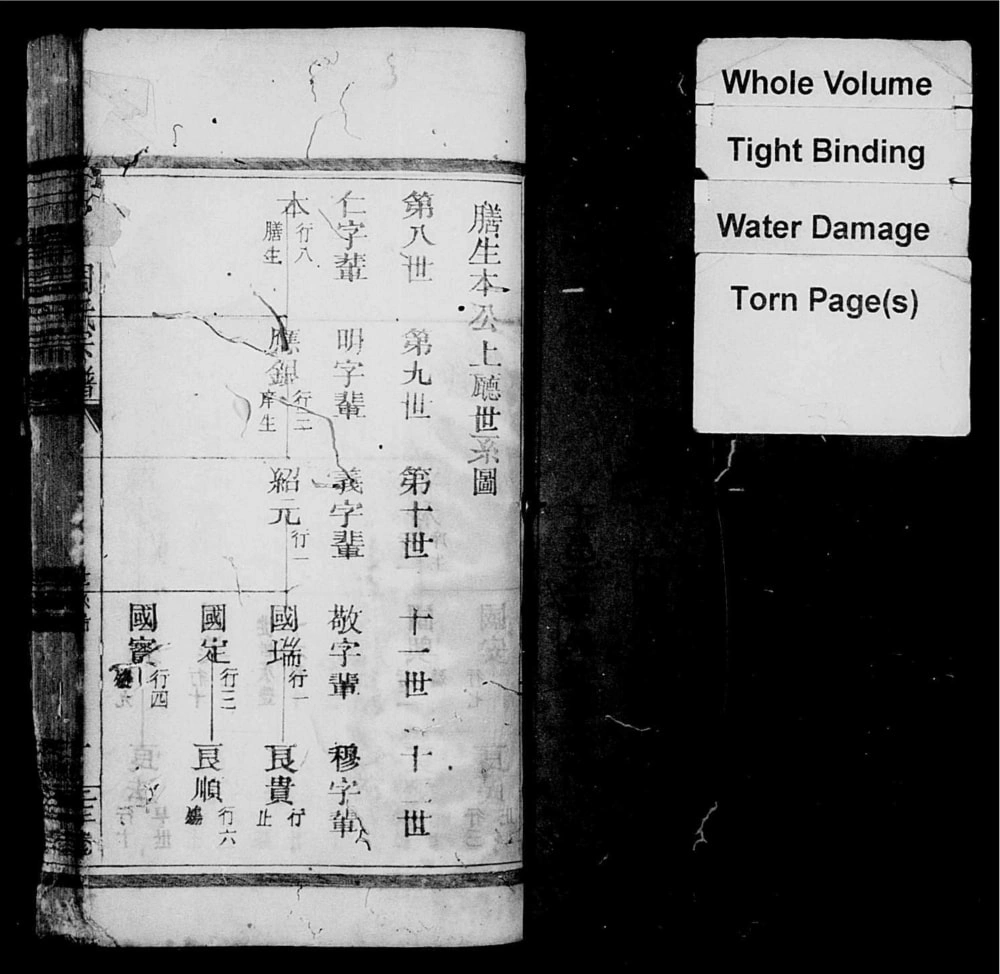 膳生本公上廳世系圖
第八世
第九世
第十世
十一世
十二世
仁字輩
明字輩
義字輩
敬字輩
穆字輩
本 行八 膳生
應銀 行二 庠生
紹元 行一
國瑞 行一
良貴 行 止
國定 行三
良順 行六
國寳 行四
Whole Volume
Tight Binding
Water Damage
Torn Page(s)